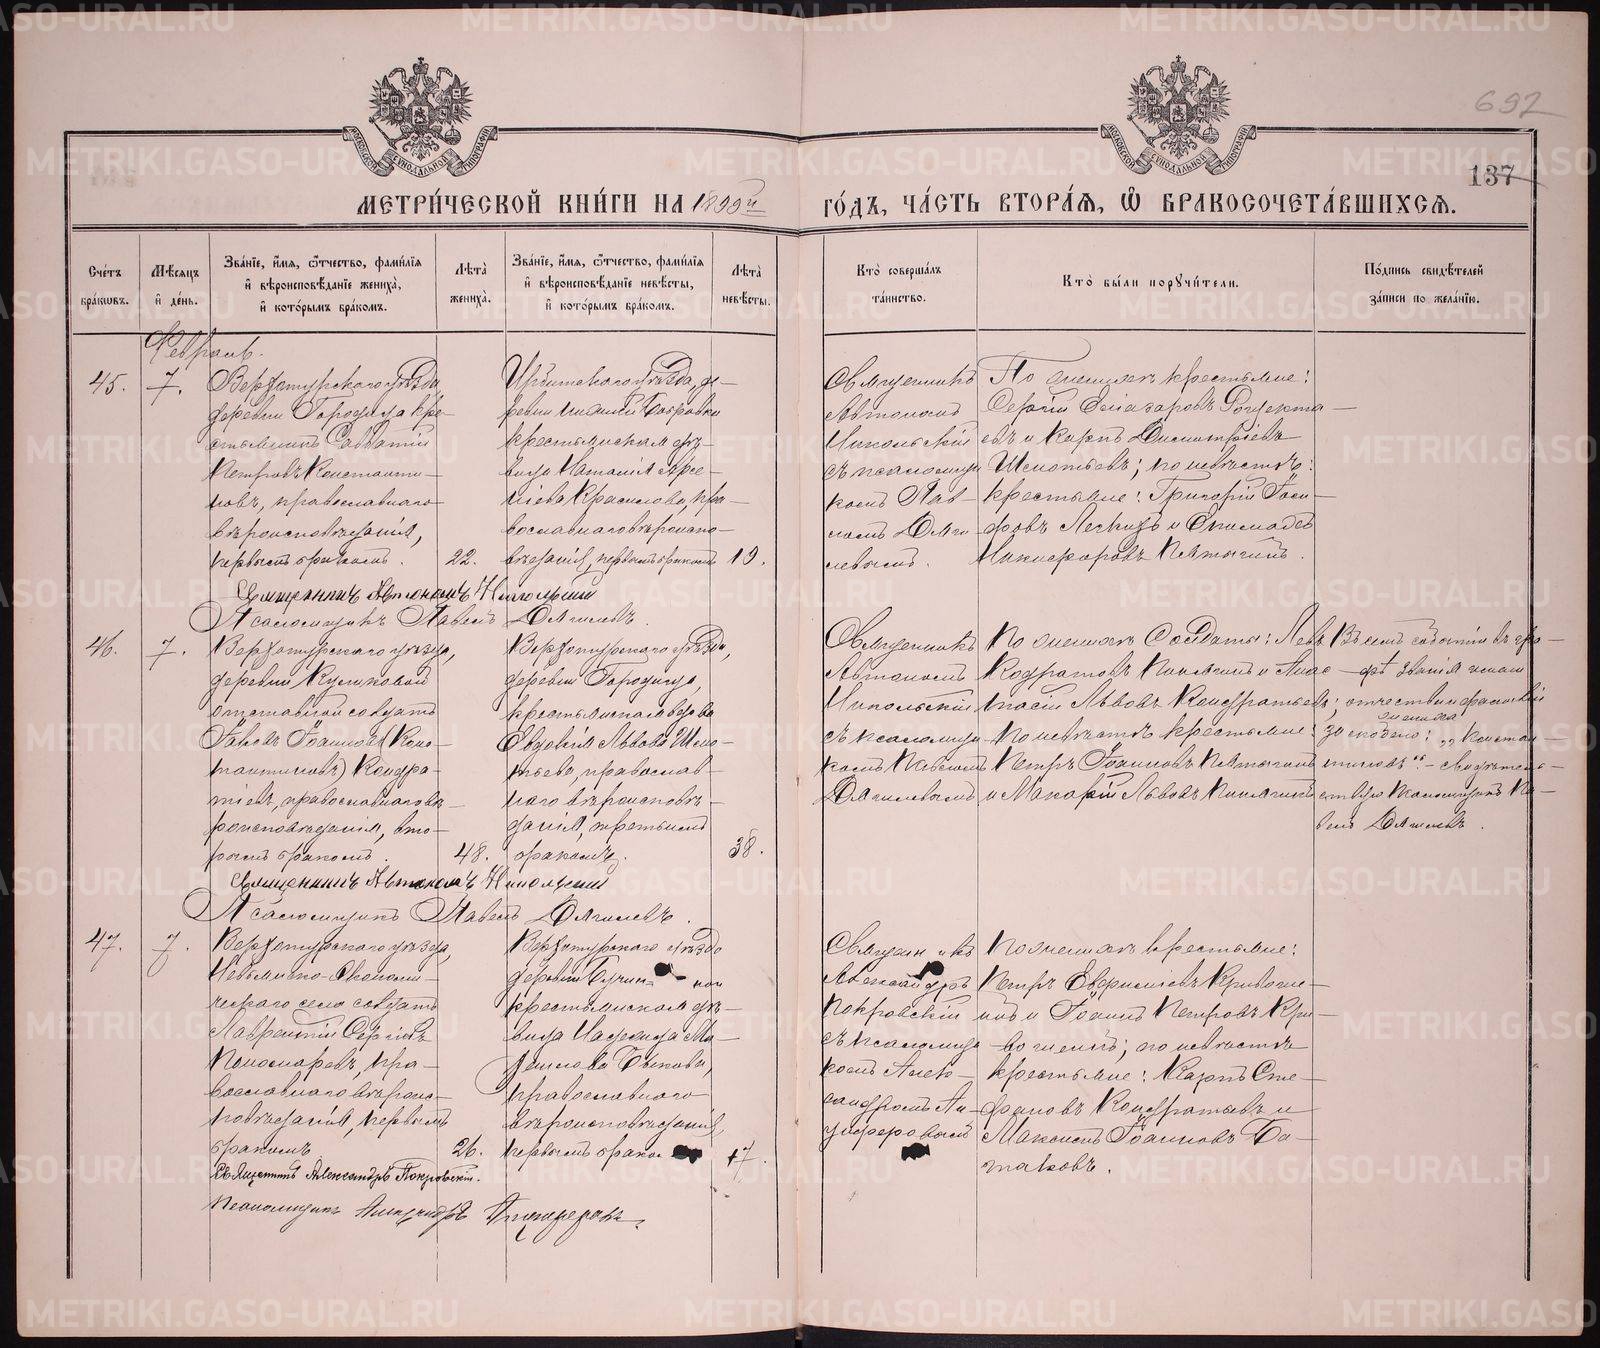 692
137
МЕТРИЧЕСКОЙ КНИГИ НА 1899й ГОДЪ, ЧАСТЬ ВТОРАЯ, Ѿ БРАКОСОЧЕТАВШИХСЯ.
Счетъ браковъ.
Мѣсяцъ и день.
Званіе, имя, ѿтчество, фамилія и вѣроисповѣданіе жениха, и которымъ бракомъ.
Лѣта жениха.
Званіе, имя, ѿтчество, фамилія и вѣроисповѣданіе невѣсты, и которымъ бракомъ.
Лѣта невѣсты.
Кто совершалъ таинство.
Кто были поручители.
Подпись свидѣтелей записи по желанію.
Февраль.
45.
7.
Верхотурскаго уѣзда
деревни Городища кре-
стьянинъ Савватій
Петровъ Константи-
новъ, православнаго
вѣроисповѣданія,
первымъ бракомъ.
22.
Ирбитскаго уѣзда, де-
ревни Бобровки
крестьянская дѣ-
вица Наталія Арсе-
ніева Красилова, пра-
вославнаго вѣроиспо-
вѣданія, первымъ бракомъ
19.
Священникъ
Автономъ
Никольскій
съ псаломщи-
комъ Пав-
ломъ Дяги-
левымъ.
По женихѣ крестьяне:
Сергій
евъ и Карпъ Димитріевъ
Шснотьевъ; по невѣстѣ:
крестьяне: Григорій Іоси-
фовъ
Никифоровъ Пятыгинъ.
Священникъ Автономъ Никольскій
Псаломщикъ Павелъ Дягилевъ.
46.
7.
Верхотурскаго уѣзда,
деревни Куликовой
отставной солдатъ
Іаковъ Іоанновъ (Конс-
тантиновъ) Кондра-
тіевъ, православнаго вѣ-
роисповѣданія, вто-
рымъ бракомъ.
48.
Верхотурскаго уѣзда,
деревни Городища,
крестьянская вдова
Евдокія Львова Шсно-
тьева, православ-
наго вѣроисповѣ-
данія, третьимъ
бракомъ.
38.
Священникъ
Автономъ
Никольскій
съ псаломщи-
комъ Павломъ
Дягилевымъ
По женихѣ солдаты: Левъ
Кодратовъ Пинягинъ и Анас-
тасій Львовъ Кондратьевъ;
По невѣстѣ крестьяне:
Петръ Іоанновъ Пятыгинъ
и Макарій Львовъ Пинягинъ
Въ семъ событіи въ гра-
фѣ званія имени
отчества и фамиліи
жениха
за скобкою: „Констан-
тиновъ“ - свидѣтель-
ствую Псаломщикъ Па-
велъ Дягилевъ.
Священникъ Автономъ Никольскій
Псаломщикъ Павелъ Дягилевъ.
47.
7.
Верхотурскаго уѣзда,
Невьянско-
скаго села солдатъ
Лаврентій Сергіевъ
Пономаревъ, пра-
вославнаго вѣроис-
повѣданія, первымъ
бракомъ
26.
Верхотурскаго уѣзда
деревни
крестьянская дѣ-
вица Надежда Ма-
нуилова Быкова,
православнаго
вѣроисповѣданія,
первымъ бракомъ
17.
Священникъ
Александръ
Покровскій
съ псаломщи-
комъ Алек-
сандромъ Ан-
цыферовымъ
По женихѣ крестьяне:
Петръ Евфиміевъ Кривоги-
ницъ и Іоаннъ Петровъ Кри-
вогиницъ; по невѣстѣ
крестьяне: Карпъ Сте-
фановъ Кондратьевъ и
Максимъ Іоанновъ Ба-
таковъ.
Священникъ Александръ Покровскій.
Псаломщикъ Александръ Анцыферовъ.